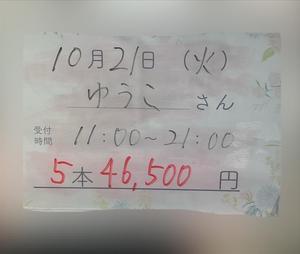 10月21日(火)
ゆうこ さん
受付時間 11:00~21:00
5本 46,500 円